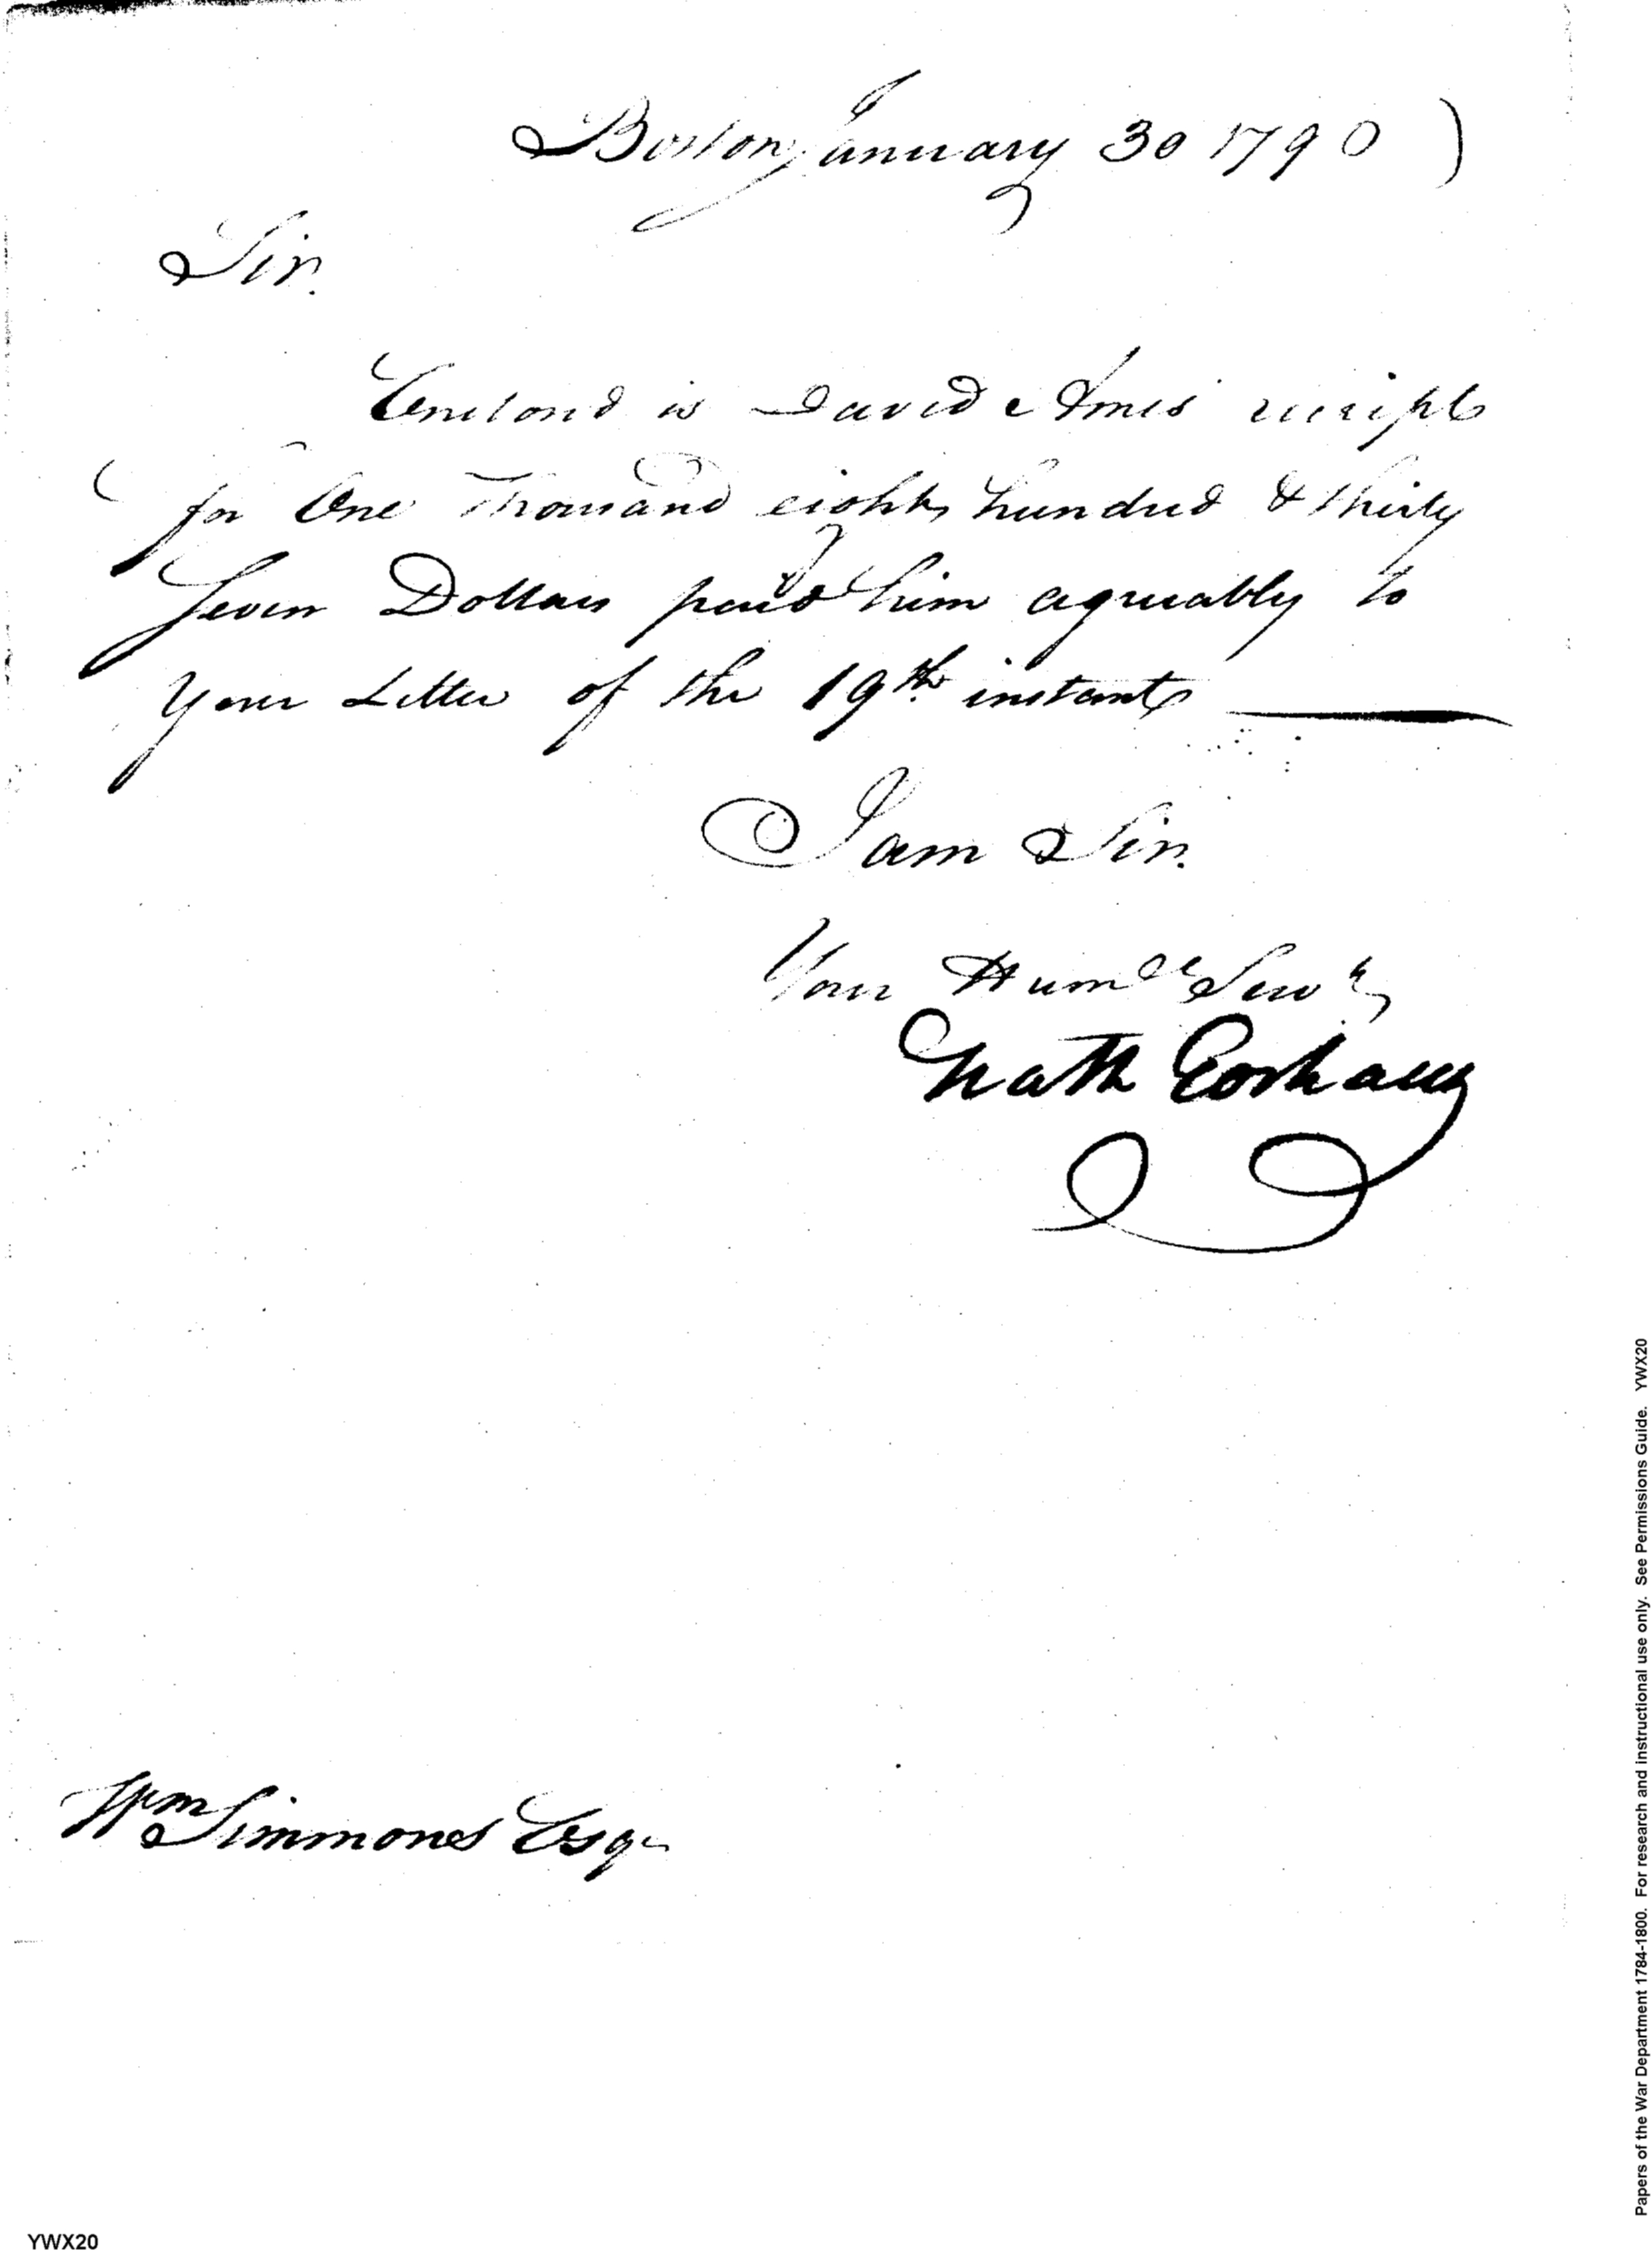 Boston January 30 1790)
Sir.
Enclosd is David Ames receipt
for One Thousand eight hundred & thirty
Seven Dollars paid him agreeably to
Your Letter of the 19th instant
I am Sir.
Your Humle Servt
Nath Gorham
Wm Simmones Esqr
YWX20
Papers of the War Department 1784-1800. For research and instructional use only. See Permissions Guide. YWX20